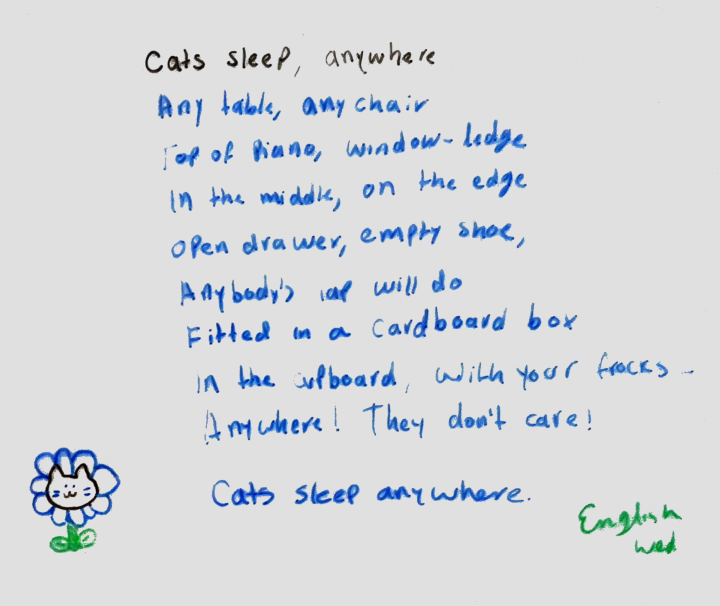 Cats sleep, anywhere
Any table, any chair
Top of Piano, window-ledge
In the middle, on the edge
Open drawer, empty shoe,
Anybody's lap will do
Fitted in a cardboard box
In the cupboard, with your frocks -
Anywhere! They don't care!
Cats sleep anywhere.
English
wed